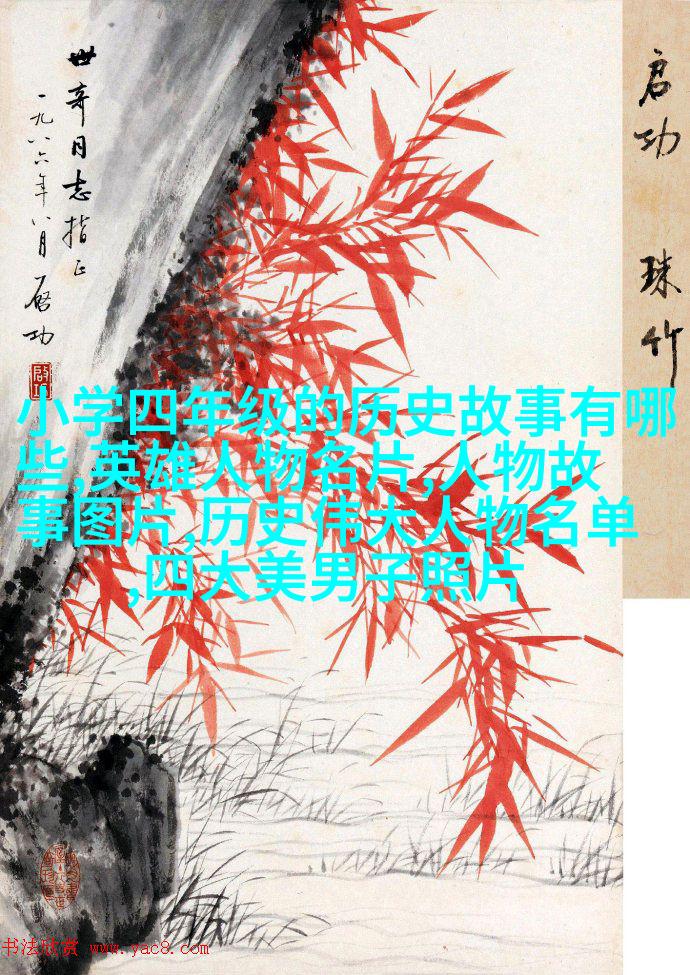 世奇同志指正
一九八六年八月 启功
启功
启功 珠竹
小学四年级的历史故事有哪
些,英雄人物名片,人物故
事图片,历史伟大人物名单
,四大美男子照片
书法欣赏 www.yac8.com